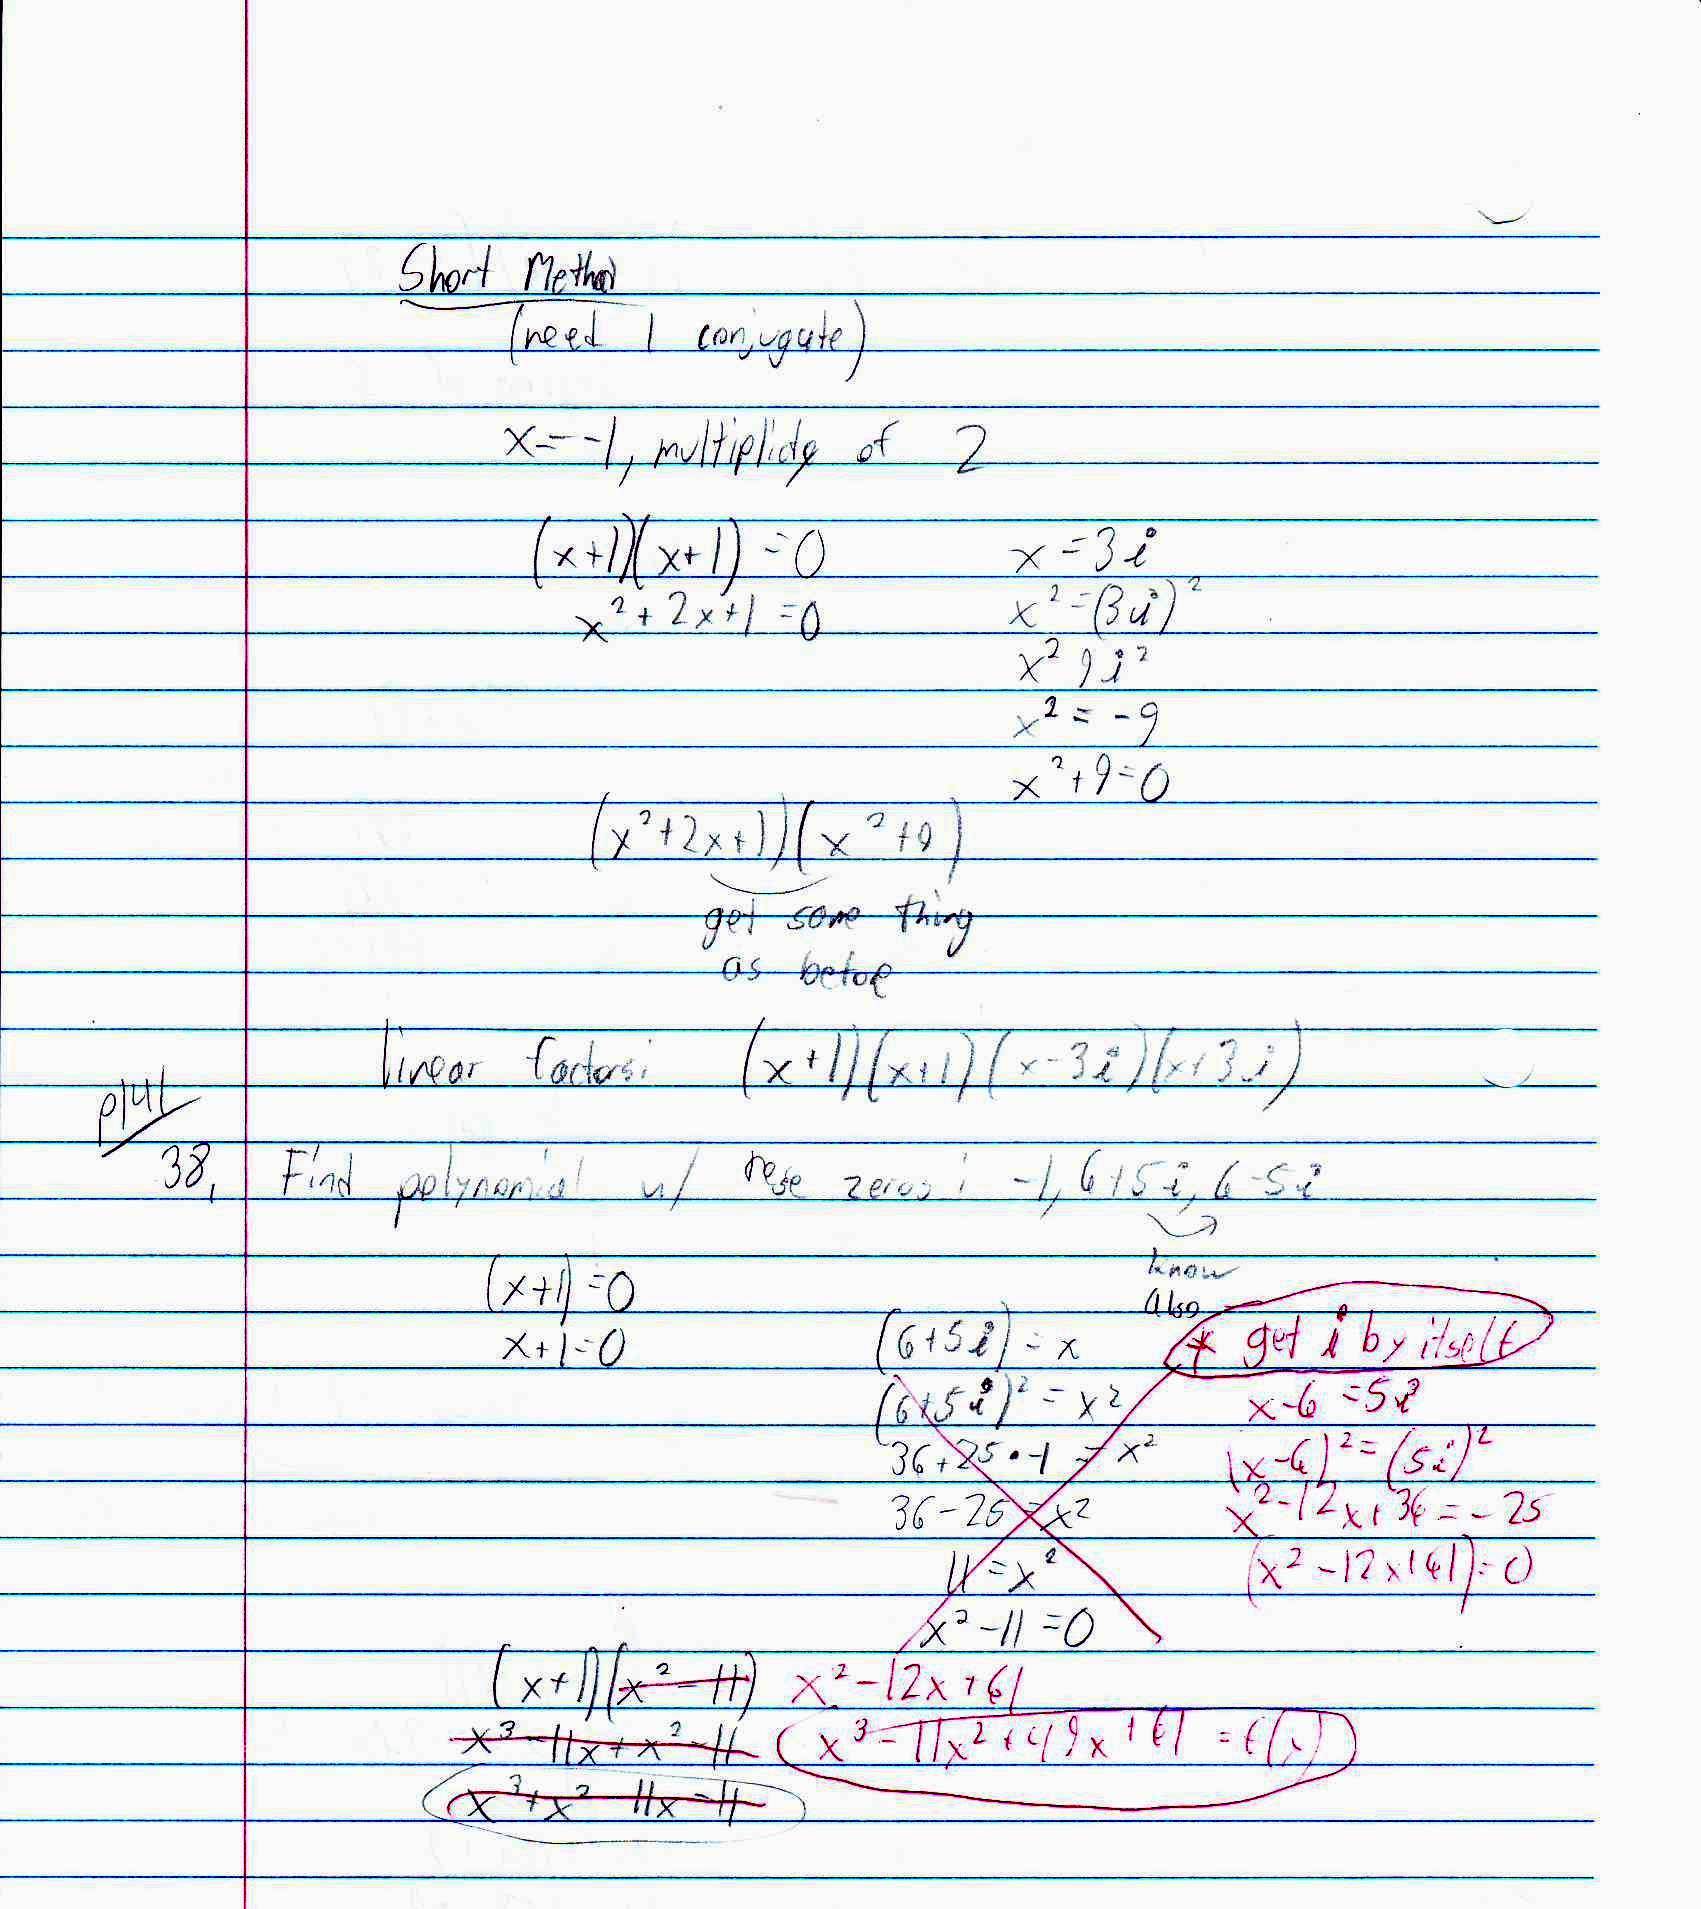 Short Method
(need 1 conjugate)
x=-1, multiplicity of 2
(x+1)(x+1) = 0
x² + 2x + 1 = 0
x = 3i
x² = (3i)²
x² 9i²
x² = -9
x² + 9 = 0
(x² + 2x + 1)(x² + 9)
get same thing
as before
linear factors: (x+1)(x+1)(x-3i)(x+3i)
p141
38. Find polynomial w/ these zeros: -1, 6+5i, 6-5i
know
also
(x+1) = 0
x+1=0
(6+5i) = x
(6+5i)² = x²
36+25•-1 = x²
36-25 = x²
11 = x²
x² - 11 = 0
* get i by itself
x-6 = 5i
(x-6)² = (5i)²
x² - 12x + 36 = -25
(x² - 12x + 61) = 0
(x+1)(x² - 11) x² - 12x + 61
x³ - 11x + x² - 11 x³ - 11x² + 49x + 61 = f(x)
x³ + x² - 11x - 11